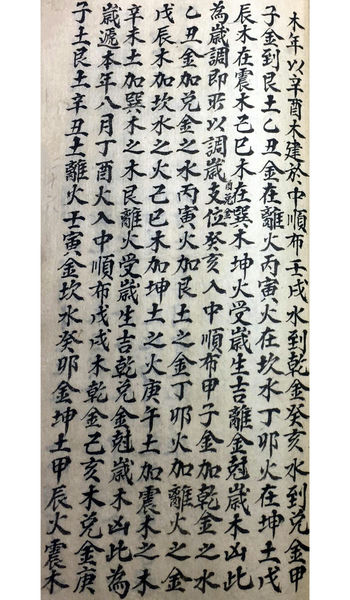 木年以辛酉木建於中順布壬戌水到乾金癸亥水到兌金甲
子金到艮土乙丑金在離火丙寅火在坎水丁卯火在坤土戊
辰木在震木己巳木在巽木坤火受歲生吉離金尅歲木凶此
為歲調即所以調歲支位酉兌金癸亥入中順布甲子金加乾金之水
乙丑金加兌金之水丙寅火加艮土之金丁卯火加離火之金
戊辰木加坎水之火己巳木加坤土之火庚午土加震木之木
辛未土加巽木之木艮離火受歲生吉乾兌金尅歲木凶此為
歲遞本年八月丁酉火入中順布戊戌木乾金己亥木兌金庚
子土艮土辛丑土離火壬寅金坎水癸卯金坤土甲辰火震木